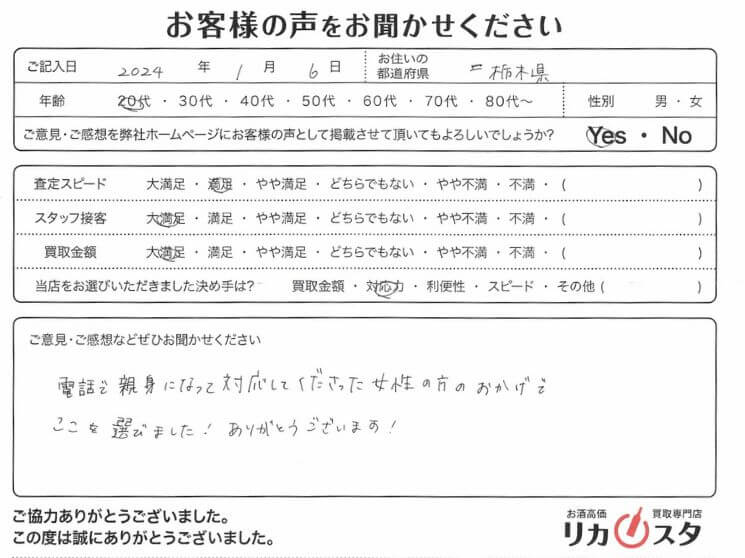 お客様の声をお聞かせください
ご記入日 2024 年 1 月 6 日 お住いの都道府県 栃木県
年齢 20代 ・ 30代 ・ 40代 ・ 50代 ・ 60代 ・ 70代 ・ 80代〜 性別 男 ・ 女
ご意見・ご感想を弊社ホームページにお客様の声として掲載させて頂いてもよろしいでしょうか? Yes ・ No
査定スピード 大満足 ・ 満足 ・ やや満足 ・ どちらでもない ・ やや不満 ・ 不満 ・ ( )
スタッフ接客 大満足 ・ 満足 ・ やや満足 ・ どちらでもない ・ やや不満 ・ 不満 ・ ( )
買取金額 大満足 ・ 満足 ・ やや満足 ・ どちらでもない ・ やや不満 ・ 不満 ・ ( )
当店をお選びいただきました決め手は? 買取金額 ・ 対応力 ・ 利便性 ・ スピード ・ その他 ( )
ご意見・ご感想などぜひお聞かせください
電話で親身になって対応してくださった女性の方のおかげで
ここを選びました! ありがとうございます!
ご協力ありがとうございました。
この度は誠にありがとうございました。
お酒高価 買取専門店
リカスタ